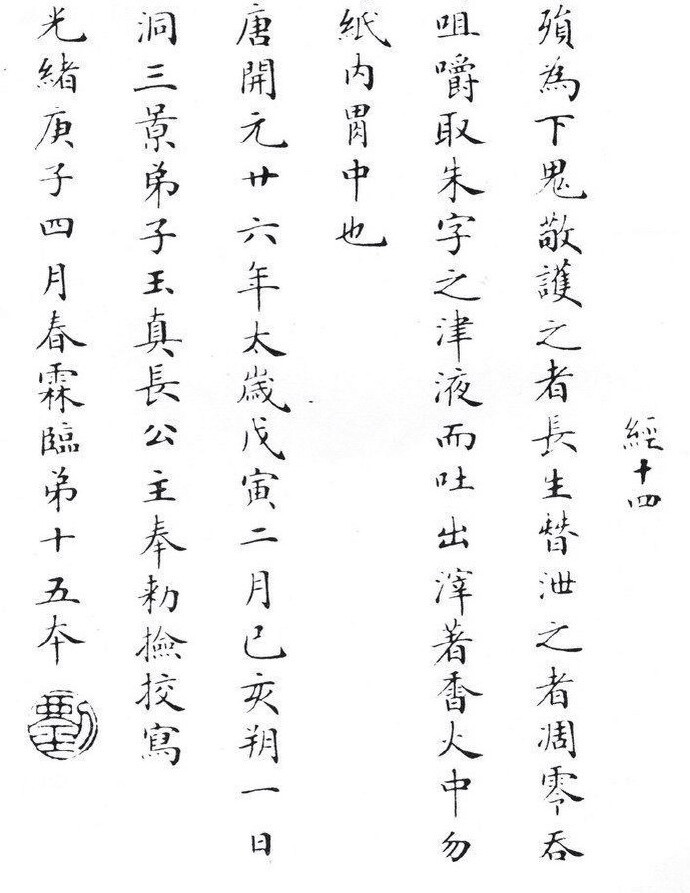 經十四
殞為下鬼敬護之者長生替泄之者凋零吞
咀嚼取朱字之津液而吐出滓著香火中勿
紙内胃中也
唐開元廿六年太歲戊寅二月己亥朔一日
洞三景弟子玉真長公主奉勅撿挍寫
光緒庚子四月春霖臨弟十五本